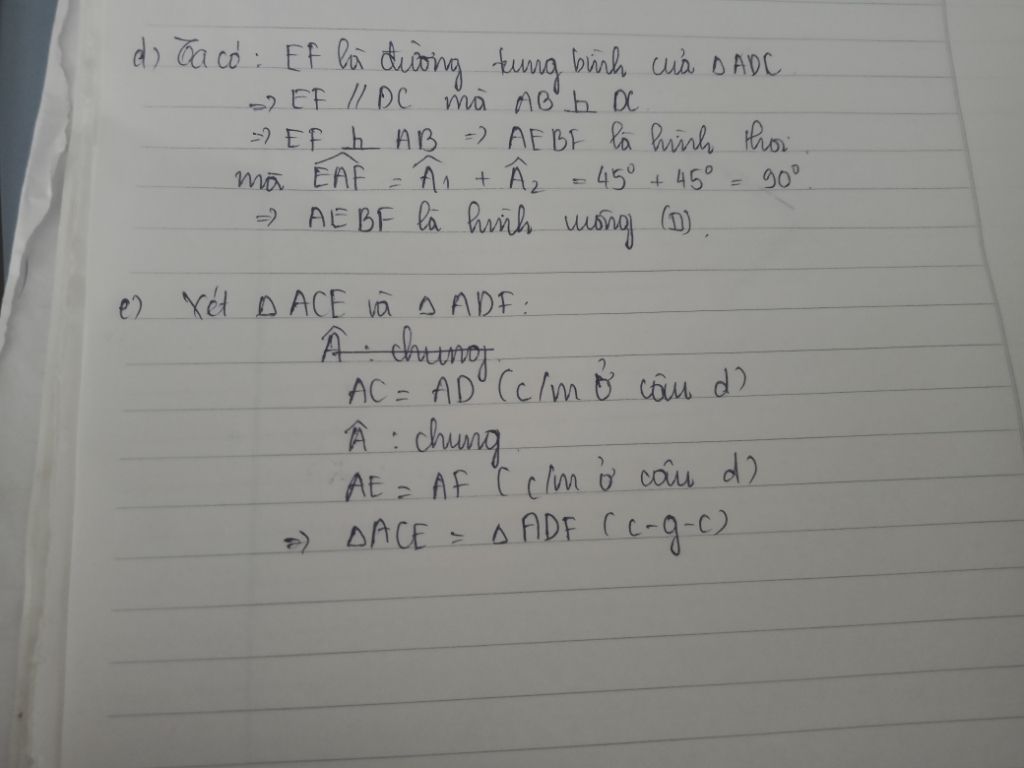 d) Ta có : EF là đường trung bình của △ADC
=> EF // DC mà AB ⊥ DC
=> EF ⊥ AB => AEBF là hình thoi.
mà EAF̂ = Â1 + Â2 = 45° + 45° = 90°.
=> AEBF là hình vuông (D).
e) Xét △ACE và △ADF:
Â : chung
AC = AD (c/m ở câu d)
Â : chung
AE = AF (c/m ở câu d)
=> △ACE = △ADF (c-g-c)